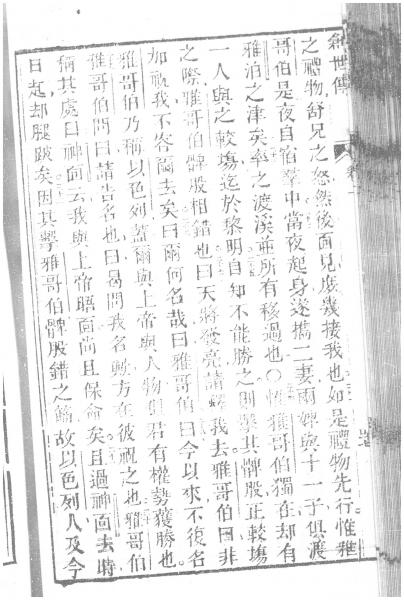 創世傳
之禮物舒兄之怒然後面見庶幾接我也如是禮物先行惟雅
哥伯是夜自宿羣中當夜起身遂攜二妻兩婢與十一子俱渡
雅泊之津矣率之渡溪並所有移過也○惟雅哥伯獨在却有
一人與之較塲迄於黎明自知不能勝之則擊其髀股正較塲
之際雅哥伯髀股相錯也曰天將發亮請釋我去雅哥伯曰非
加祝我不容爾去矣曰爾何名哉曰雅哥伯曰今以來不復名
雅哥伯乃稱以色列蓋爾與上帝與人物俱君有權勢獲勝也
雅哥伯問曰請告名也曰曷問我名歟方在彼祝之也雅哥伯
稱其處曰神面云我與上帝晤面尚且保命矣且過神面去時
日起却腿跛矣因其擊雅哥伯髀股錯之筋故以色列人及今